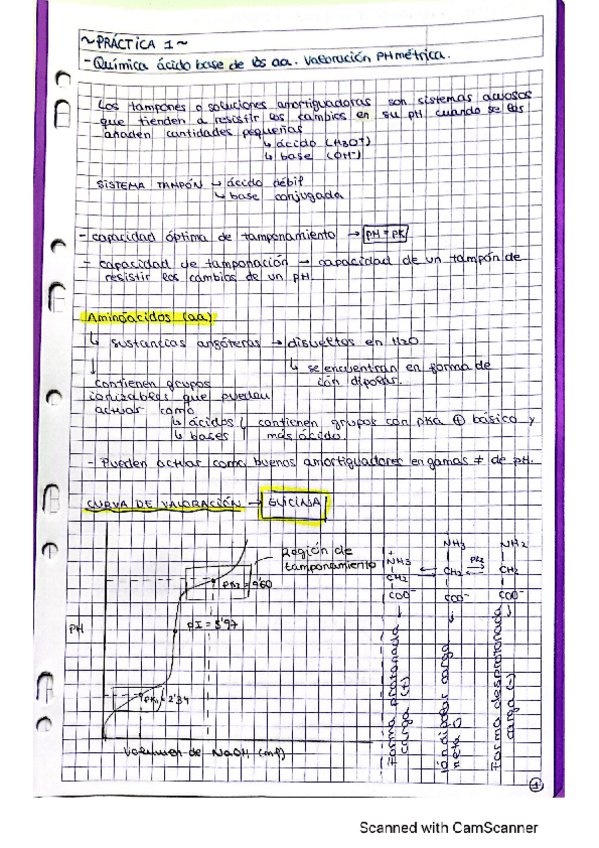 ~PRÁCTICA 1~
- Química ácido base de los aa. Valoración PHmétrica.
Los tampones o soluciones amortiguadoras son sistemas acuosos
que tienden a resistir los cambios en su pH cuando se les
añaden cantidades pequeñas
↳ ácido (H3O+)
↳ base (OH-)
SISTEMA TAMPÓN → ácido débil
↳ base conjugada
- capacidad óptima de tamponamiento → pH = pK
- capacidad de tamponación → capacidad de un tampón de
resistir los cambios de un pH.
Aminoácidos (aa)
↳ sustancias anfóteras → disueltos en H2O
↳ se encuentran en forma de
ión dipolar.
contienen grupos
ionizables que pueden
actuar como
↳ ácidos contienen grupos con pKa ⊕ básico y
↳ bases más ácido.
- Pueden actuar como buenos amortiguadores en gamas ≠ de pH.
CURVA DE VALORACIÓN → GLICINA
Región de
tamponamiento
pK2 = 9'60
pI = 5'97
pK1 = 2'34
PH
Volumen de NaOH (ml)
+
NH3
CH2
COO-
NH3
CH2
COO-
pK2
NH2
CH2
COO-
Forma protonada
carga (+)
ión dipolar carga
neta 0
Forma desprotonada
carga (-)
1
Scanned with CamScanner